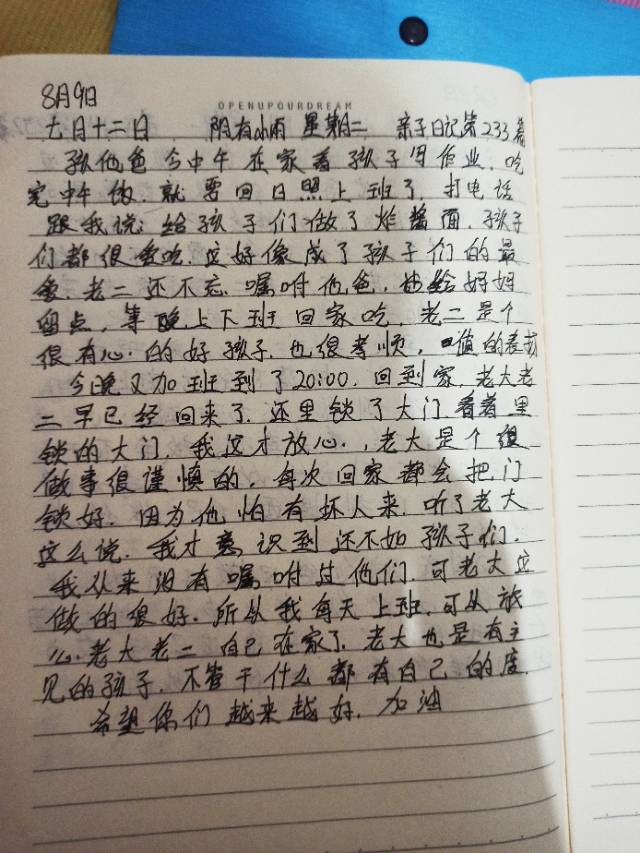 8月9日
OPENUPOURDREAM
七月十二日 阴有小雨 星期二 亲子日记第233篇
孩他爸今中午在家看孩子写作业,吃
完中午饭,就要回日照上班了,打电话
跟我说:给孩子们做了炸酱面,孩子
们都很爱吃,这好像成了孩子们的最
爱,老二还不忘嘱咐他爸,也给妈妈
留点,等晚上下班回家吃,老二是个
很有心的好孩子,也很孝顺,值的表扬
今晚又加班到了20:00,回到家,老大老
二早已经回来了,还里锁了大门看着里
锁的大门,我这才放心,老大是个很
做事很谨慎的,每次回家都会把门
锁好,因为他怕有坏人来,听了老大
这么说,我才意识到还不如孩子们,
我从来没有嘱咐过他们,可老大这
做的很好,所以我每天上班,可以放
心老大老二自己在家了,老大也是有主
见的孩子,不管干什么都有自己的度,
希望你们越来越好,加油